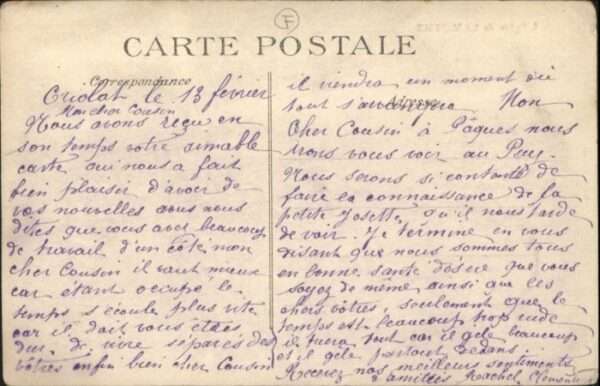 F
CARTE POSTALE
Correspondance
Criolat le 13 février
Mon cher Cousin
Nous avons reçu en
son temps votre aimable
carte qui nous a fait
bien plaisir d'avoir de
vos nouvelles vous nous
dites que vous avez beaucoup
de travail d'un côté mon
cher Cousin il vaut mieux
car étant occupé le
temps s'écoule plus vite
car il doit vous être
dur de vivre séparés des
vôtres enfin bien cher Cousin
il viendra un moment où
tout s'arrangera Mon
Adresse
Cher Cousin à Pâques nous
irons vous voir au Puy.
Nous serons si contents de
faire la connaissance de la
petite Josette, qu'il nous tarde
de voir. Je termine en vous
disant que nous sommes tous
en bonne santé désire que vous
soyez de même ainsi que les
chers vôtres, seulement que le
temps est beaucoup trop rude
il tuera tout car il gèle beaucoup
et il gèle partout dedans.
Recevez nos meilleurs sentiments
familles Rachel